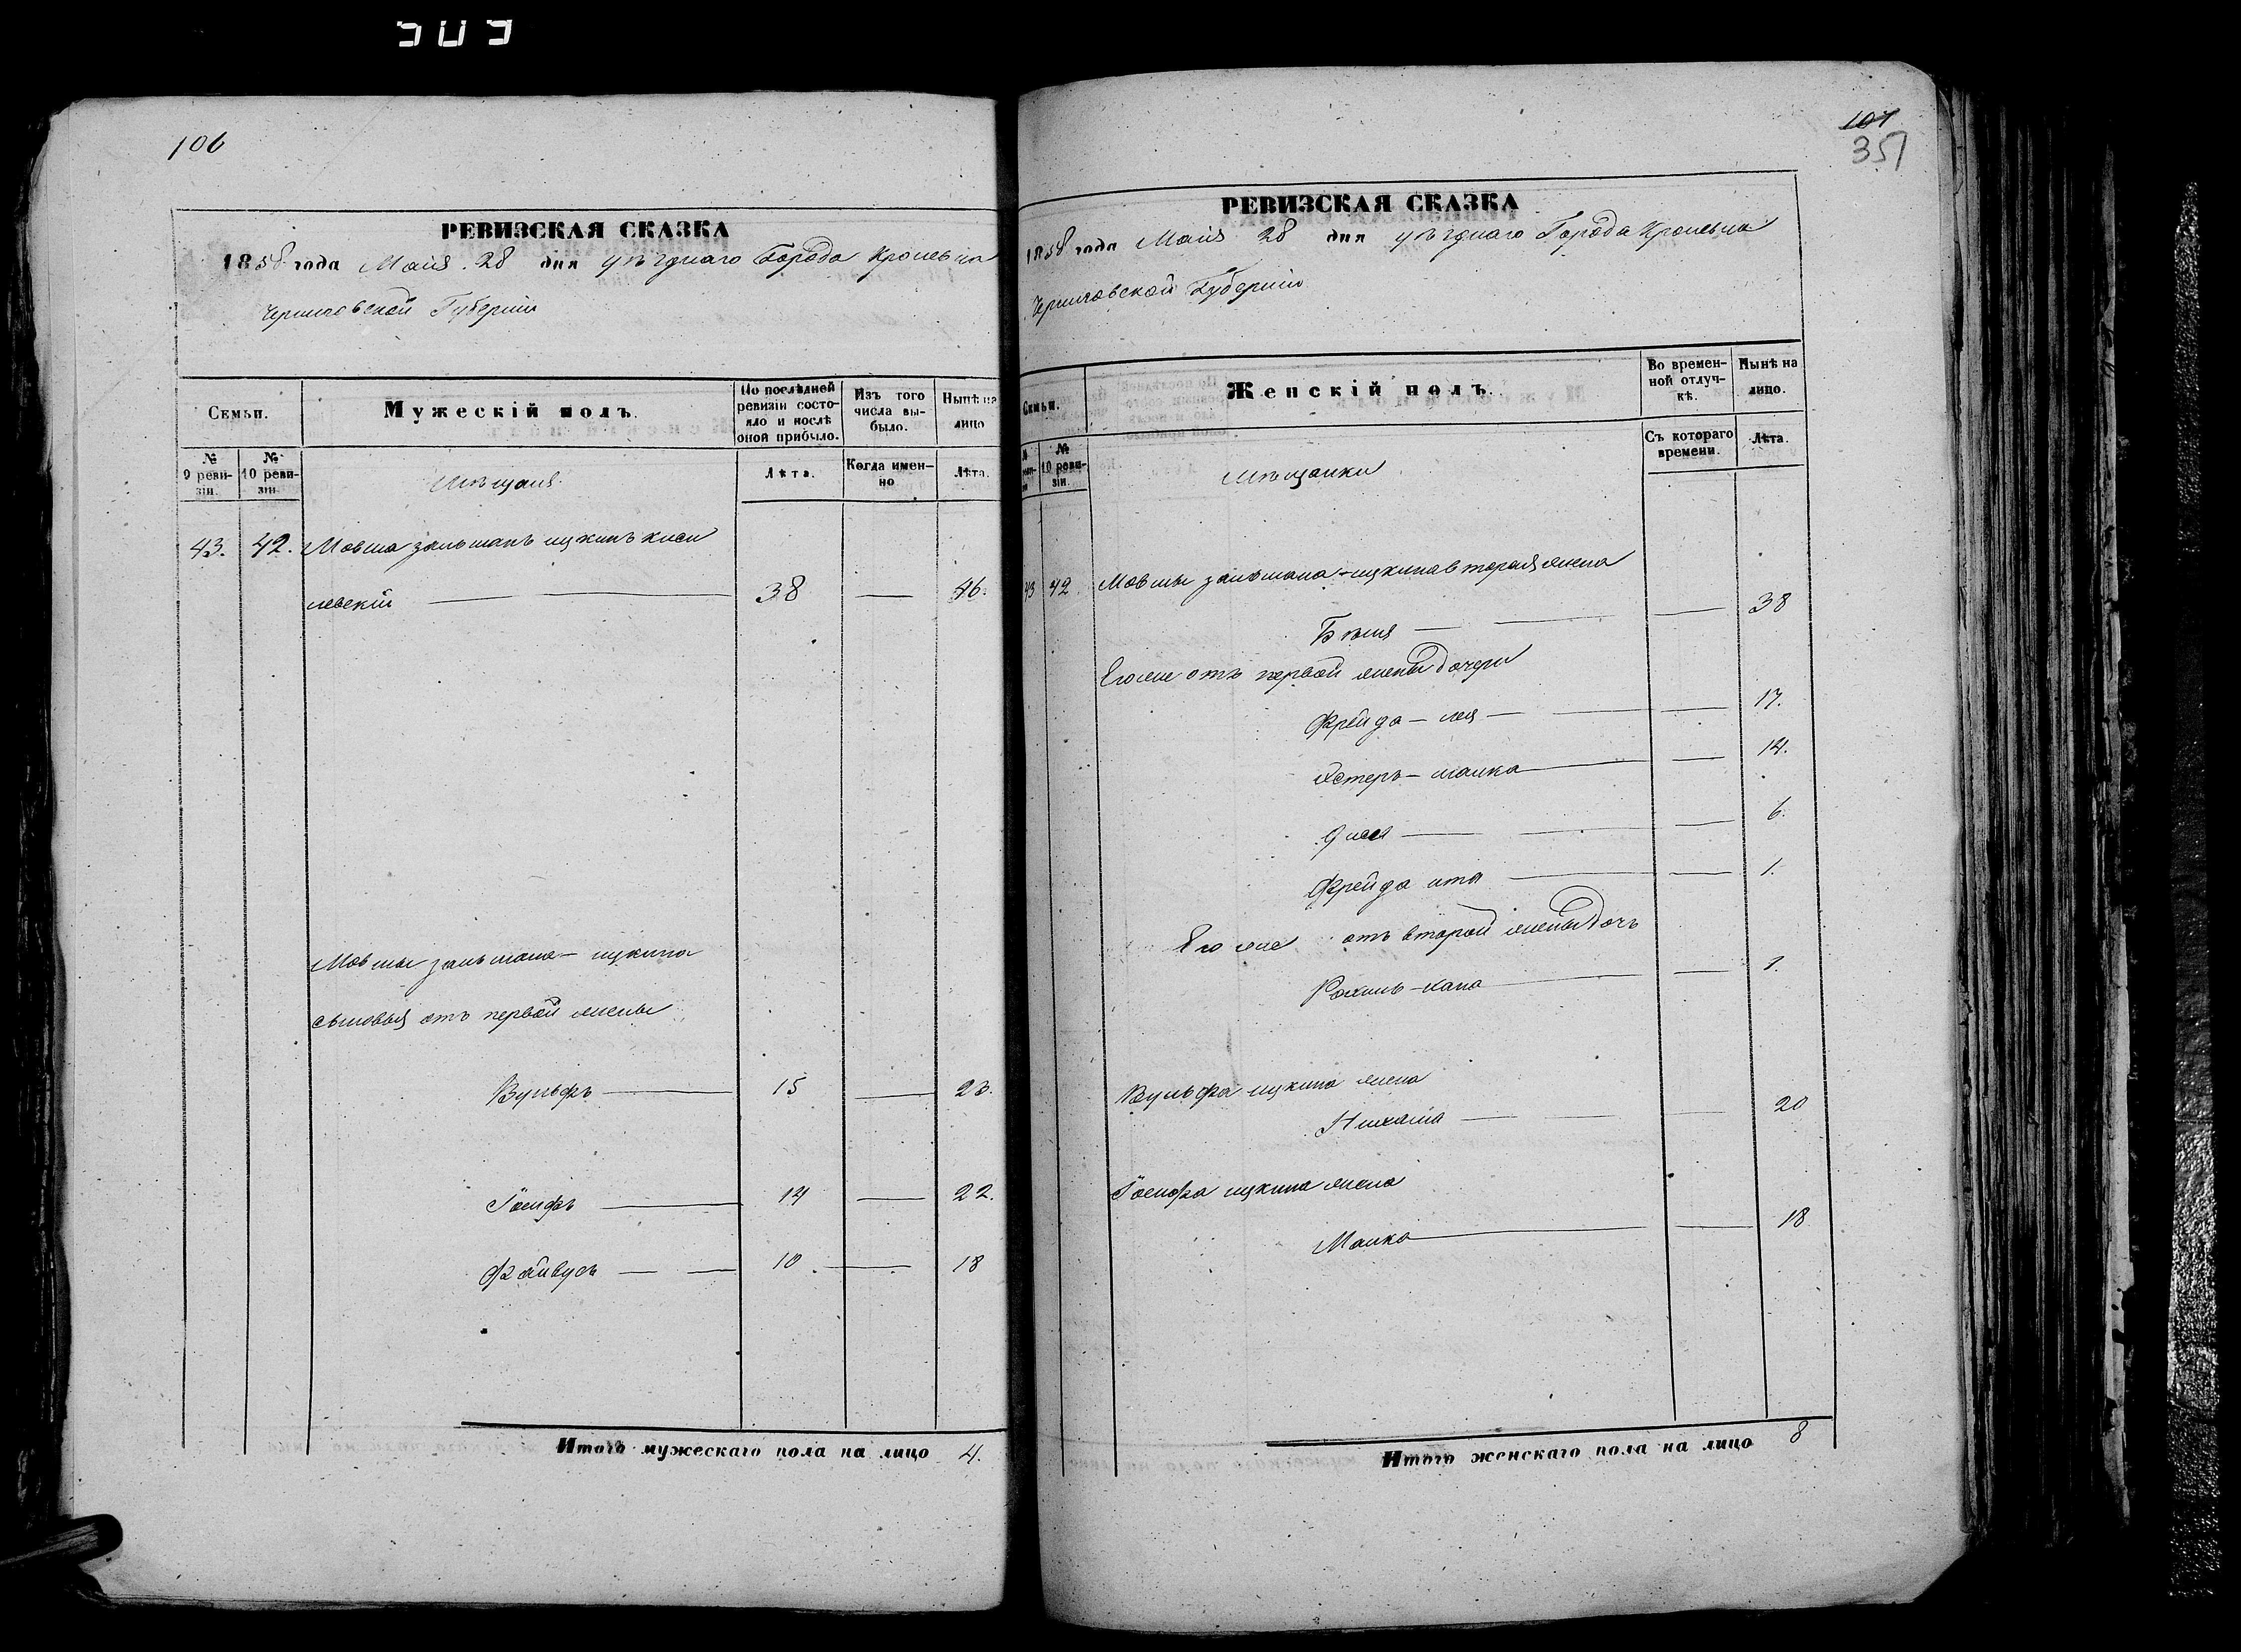 509
106
РЕВИЗСКАЯ СКАЗКА
1858 года Маія 28 дня уѣзднаго Города Кролевца
Черниговской Губерніи
Семьи.
Мужескій полъ.
По послѣдней ревизіи состояло и послѣ оной прибыло.
Изъ того числа выбыло.
Нынѣ на лицо
№ 9 ревизіи.
№ 10 ревизіи.
Мѣщане
Лѣта.
Когда именно
Лѣта.
43. 42. Мовша зальманъ ицкинъ киси
левскій — 38 — 46.
Мовши зальмана — ицкина
сыновья отъ первой жены
Вульфъ — 15 — 23.
Іосифъ — 14 — 22.
Файвусъ — 10 — 18
Итого мужескаго пола на лицо 4.
107
351
РЕВИЗСКАЯ СКАЗКА
1858 года Маія 28 дня уѣзднаго Города Кролевца
Черниговской Губерніи
Семьи.
Женскій полъ.
Во временной отлучкѣ.
Нынѣ на лицо.
№ 10 ревизіи.
Мѣщанки
Съ котораго времени.
Лѣта.
43 42 Мовши зальмана — ицкина вторая жена
Бѣля — 38
Его же отъ первой жены дочери
Фрейда — лея — 17.
Естеръ — малка — 14.
6.
Фрейда ита — 1.
Его же отъ второй жены дочь
Рохиль — хана — 1.
Вульфа ицкина жена
Нихама — 20
Іосифа ицкина жена
Малка — 18
Итого женскаго пола на лицо 8